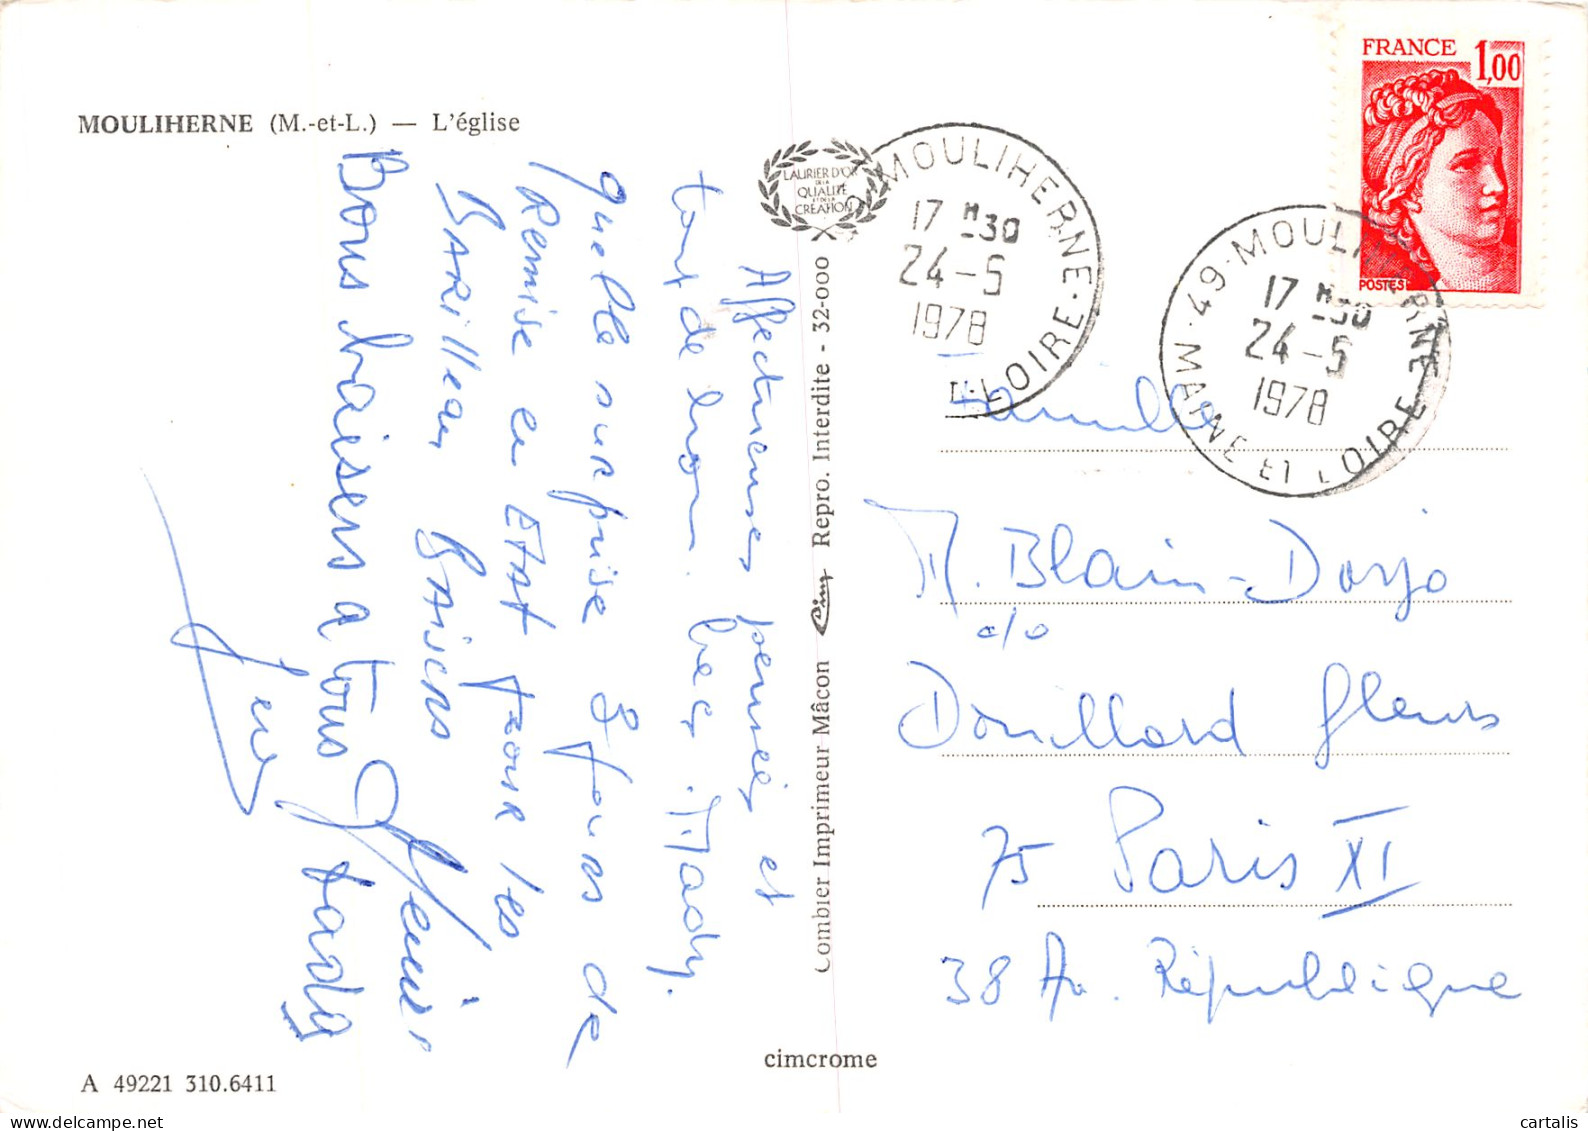 MOULIHERNE (M.-et-L.) — L'église
Affectueuses pensées et
tout de mon Mady.
quelle surprise 3 jours de
Remise en ETAT pour les
BARilleau BAisers
Bons baisers a tous
LAURIER D'OR
DE LA
QUALITÉ
ET DE LA
CRÉATION
Combier Imprimeur Mâcon Cim Repro. Interdite - 32-000
MOULIHERNE
17 H30
24-5
1978
LOIRE
49 MOULIHERNE
17 H30
24-5
1978
MAINE ET LOIRE
FRANCE 1,00
POSTES
Famille
M. Blain-Dorjo
c/o
Douillard fleurs
75 Paris XI
38 Av. République
cimcrome
A 49221 310.6411
cartalis